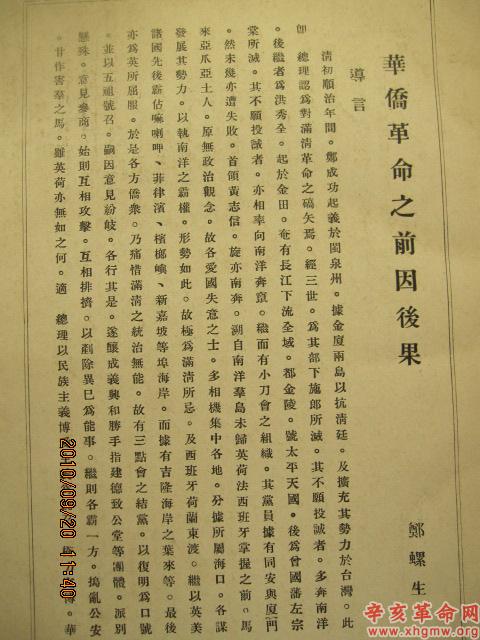 華僑革命之前因後果
鄭螺生
導言
清初順治年間。鄭成功起義於閩泉州。據金廈兩島以抗清廷。及擴充其勢力於台灣。此
卽 總理認爲對滿清革命之嚆矢焉。經三世。爲其部下施郎所滅。其不願投誠者。多奔南洋
。後繼者爲洪秀全。起於金田。奄有長江下流全域。都金陵。號太平天國。後爲曾國藩左宗
棠所滅。其不願投誠者。亦相率向南洋奔竄。繼而有小刀會之組織。其黨員據有同安與廈門
。然未幾亦遭失敗。首領黃志信。旋亦南奔。溯自南洋羣島未歸英荷法西班牙掌握之前。馬
來亞爪亞土人。原無政治觀念。故各愛國失意之士。多相機集中各地。分據所屬海口。各謀
發展其勢力。以執南洋之霸權。形勢如此。故極爲滿清所忌。及西班牙荷蘭東渡。繼以英美
諸國先後霸佔嘛喇呷、菲律濱、檳榔嶼、新嘉坡等埠海岸。而據有吉隆海岸之葉來等。最後
亦爲英所屈服。於是各方僑衆。乃痛惜滿清之統治無能。故有三點會之結黨。以復明爲口號
。並以五祖號召。嗣因意見紛岐。各行其是。遂釀成義興和勝手指建德致公堂等團體。派別
懸殊。意見參商。始則互相攻擊。互相排擠。以剷除異已爲能事。繼則各霸一方。搗亂公安
。甘作害羣之馬。雖英荷亦無如之何。適 總理以民族主義博
華
2010/09/20 11:40
辛亥革命网
www.xhgmw.com